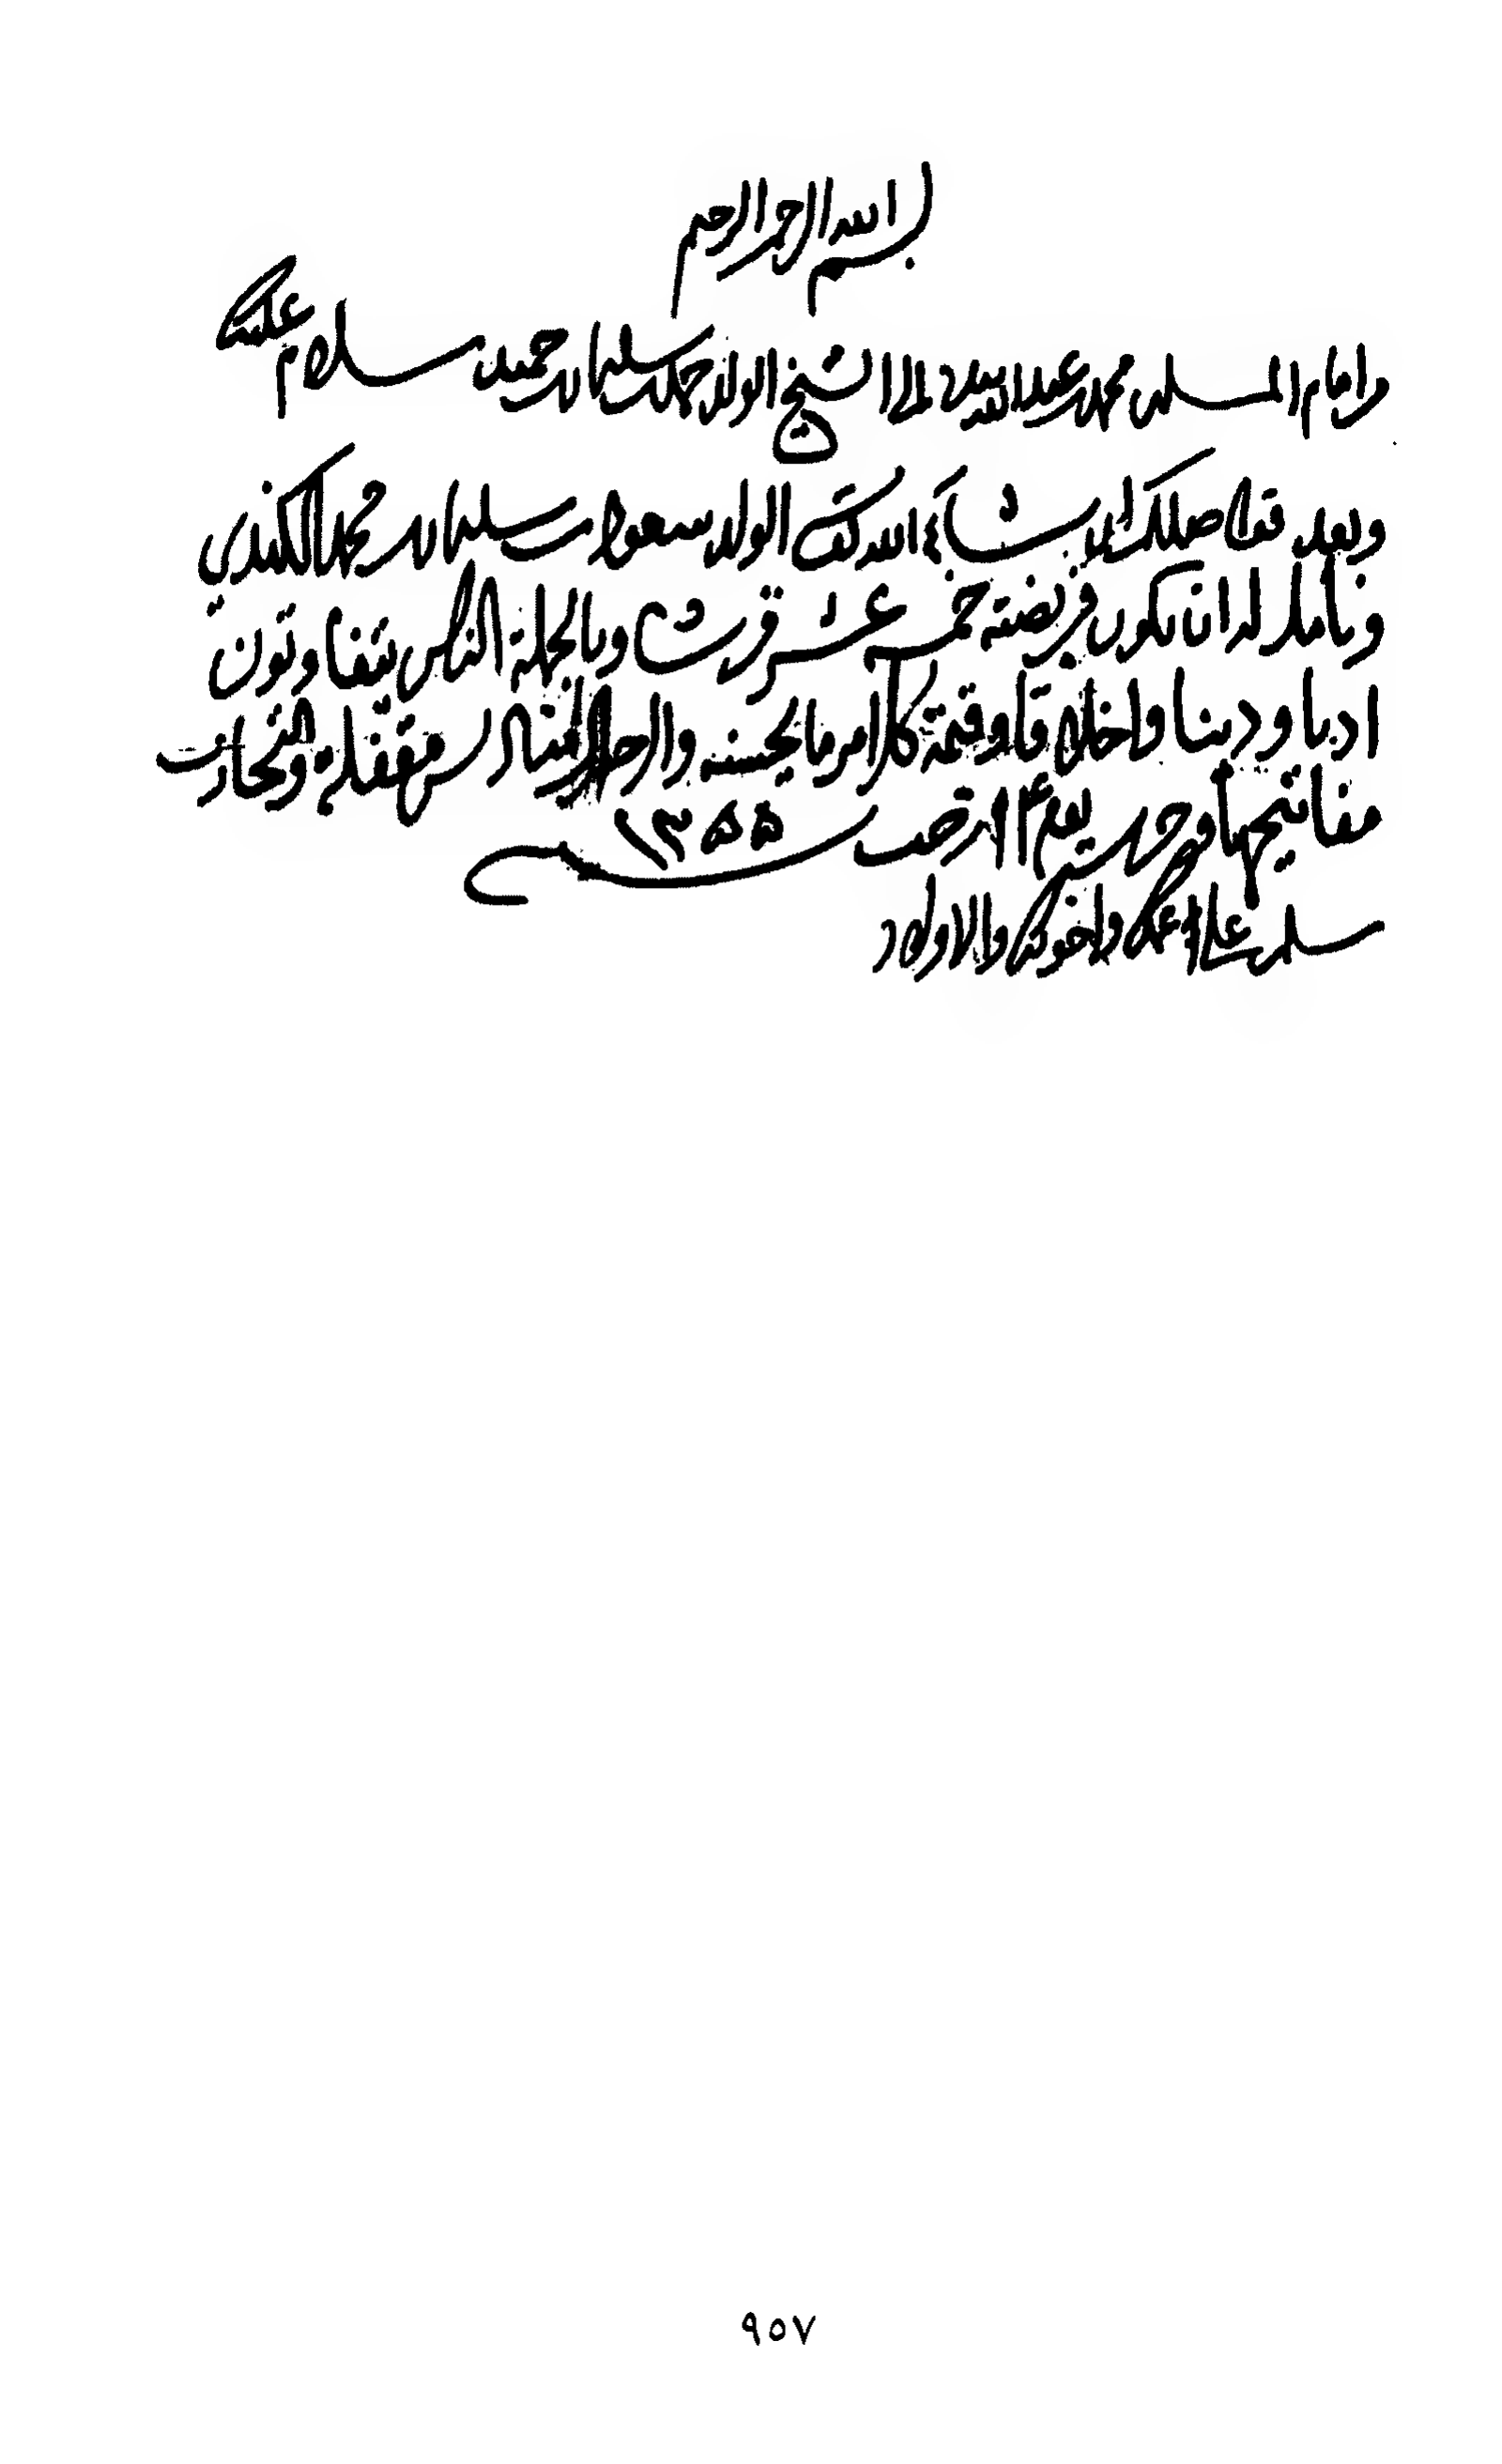 بسم الله الرحمن الرحيم
من امام المسلمين محمد بن عبدالله بيده إلى الشيخ الولد حمد بن سليمان بن حميد سلام عليك
وبعد فقد اصلك ان شاء الله كتب الولد سعود بن سليمان بن محمد الكندي
ونأمل له ان تكون فريضته خمسة عشر قرشا وبالجملة الناس يتفاوتون
ادبا ودينا واخلاقا وقيمة كل امرء ما يحسنه والرجال صناديق مقفلة والتجارب
مفاتيحها وحرر يوم ١٤ من رجب ١٣٥٥
سلم على عمك واخوتك والاولاد
٩٥٧